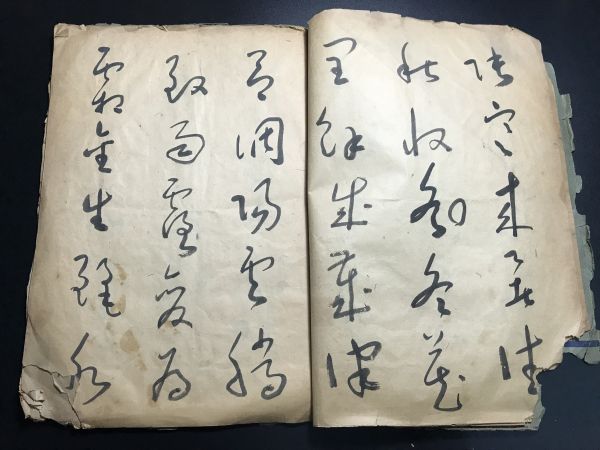 張寒來暑往
秋收冬藏
閏餘成歲律
呂調陽雲騰
致雨露結為
霜金生麗水